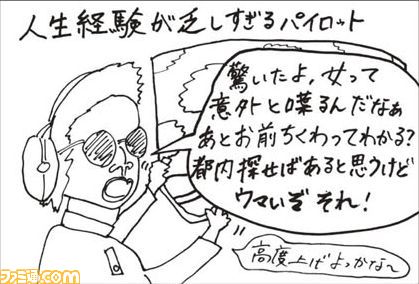 人生経験が乏しすぎるパイロット
驚いたよ,女って
意外と喋るんだなぁ
あとお前ちくわってわかる?
都内探せばあると思うけど
ウマいぞ それ!
高度上げよっかな〜
ファミ通.com